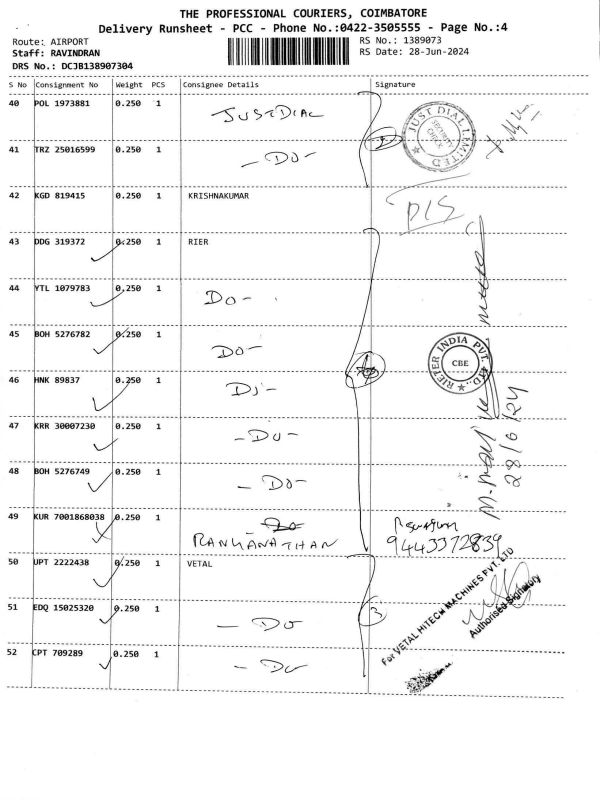 THE PROFESSIONAL COURIERS, COIMBATORE
Delivery Runsheet - PCC - Phone No.:0422-3505555 - Page No.:4
Route: AIRPORT
RS No.: 1389073
Staff: RAVINDRAN
RS Date: 28-Jun-2024
DRS No.: DCJB138907304
S No Consignment No Weight PCS Consignee Details Signature
40 POL 1973881 0.250 1 JUSTDIAL
JUST DIAL LIMITED
SECURITY CHECK
41 TRZ 25016599 0.250 1 -Do-
42 KGD 819415 0.250 1 KRISHNAKUMAR
DIS
43 DDG 319372 0.250 1 RIER
44 YTL 1079783 0.250 1 Do-
45 BOH 5276782 0.250 1 Do-
RIETER INDIA PVT. LTD.,
CBE
46 HNK 89837 0.250 1 Do-
47 KRR 30007230 0.250 1 -Do-
28/6/24
48 BOH 5276749 0.250 1 -Do-
49 KUR 7001868038 0.250 1 RANGANATHAN
9443372839
50 UPT 2222438 0.250 1 VETAL
For VETAL HITECH MACHINES PVT. LTD
Authorised Signatory
51 EDQ 15025320 0.250 1 -Do
3
52 CPT 709289 0.250 1 -Do